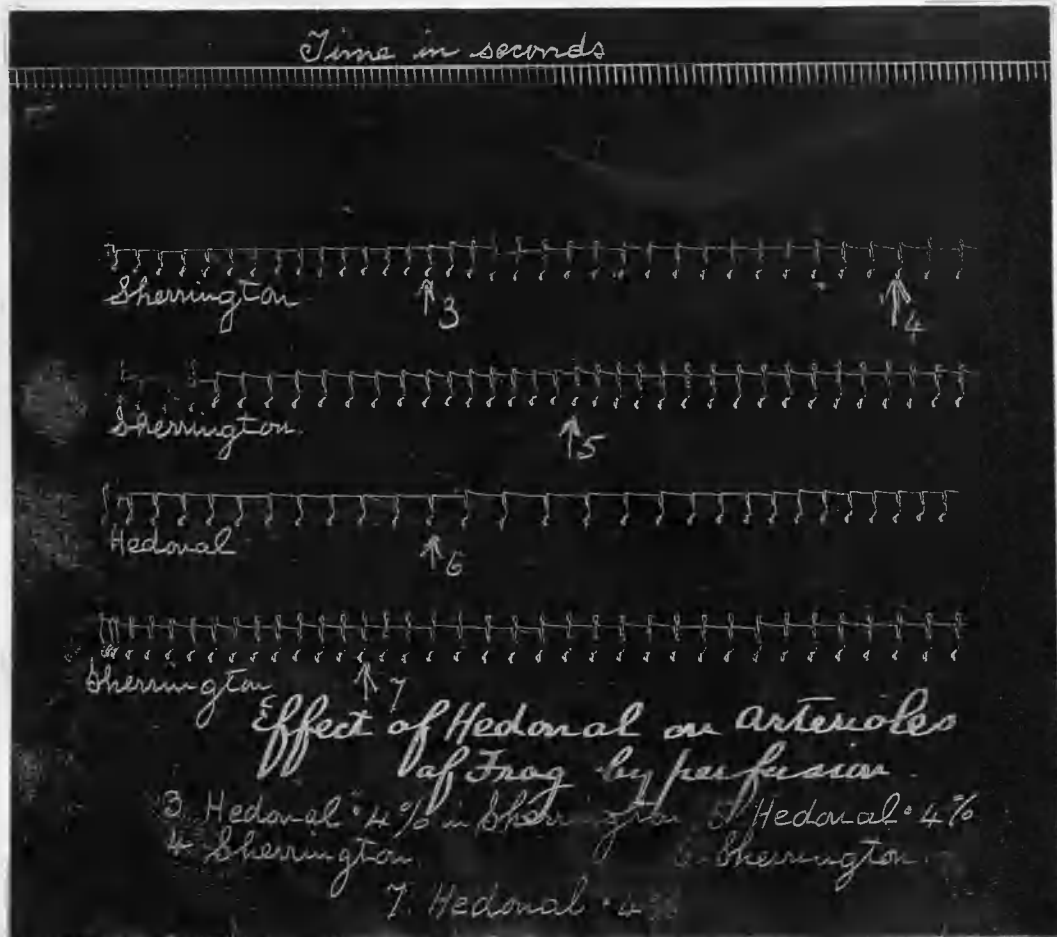 Time in seconds
Sherrington
3
4
Sherrington.
5
Hedonal
6
Sherrington
7
Effect of Hedonal on arterioles
of Frog by perfusion.
3. Hedonal ·4% in Sherrington 5 Hedonal ·4%
4. Sherrington. 6. Sherrington.
7. Hedonal ·4%